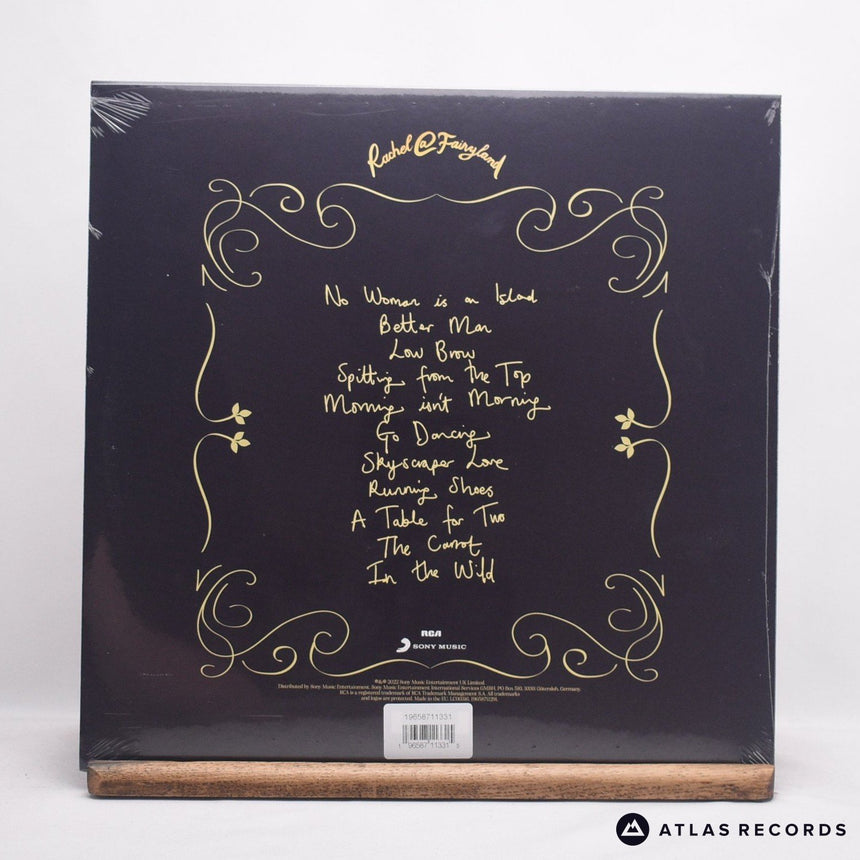 Rachel @ Fairyland
No Woman is an Island
Better Man
Low Brow
Spitting from the Top
Morning isn't Morning
Go Dancing
Skyscraper Love
Running Shoes
A Table for Two
The Carrot
In the Wild
RCA
SONY MUSIC
℗ & © 2022 Sony Music Entertainment UK Limited.
Distributed by Sony Music Entertainment. Sony Music Entertainment International Services GMBH, PO Box 510, 33311 Gütersloh, Germany.
RCA is a registered trademark of RCA Trademark Management S.A. All trademarks
and logos are protected. Made in the EU. 19658711331.
19658711331
1 96587 11331 5
ATLAS RECORDS